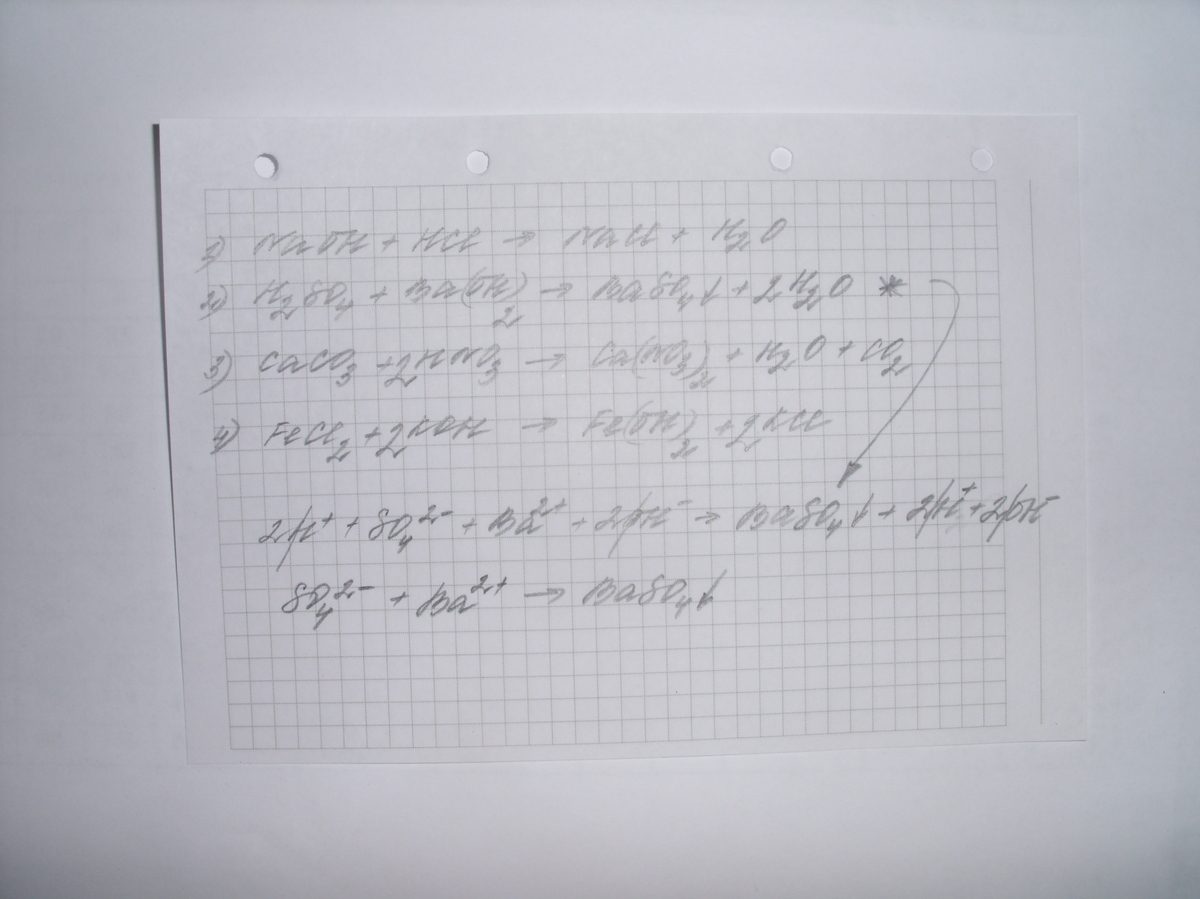 1) NaOH + HCl → NaCl + H₂O
2) H₂SO₄ + Ba(OH)₂ → BaSO₄↓ + 2H₂O *
3) CaCO₃ + 2HNO₃ → Ca(NO₃)₂ + H₂O + CO₂
4) FeCl₂ + 2KOH → Fe(OH)₂ + 2KCl
2H⁺ + SO₄²⁻ + Ba²⁺ + 2OH⁻ → BaSO₄↓ + 2H⁺ + 2OH⁻
SO₄²⁻ + Ba²⁺ → BaSO₄↓